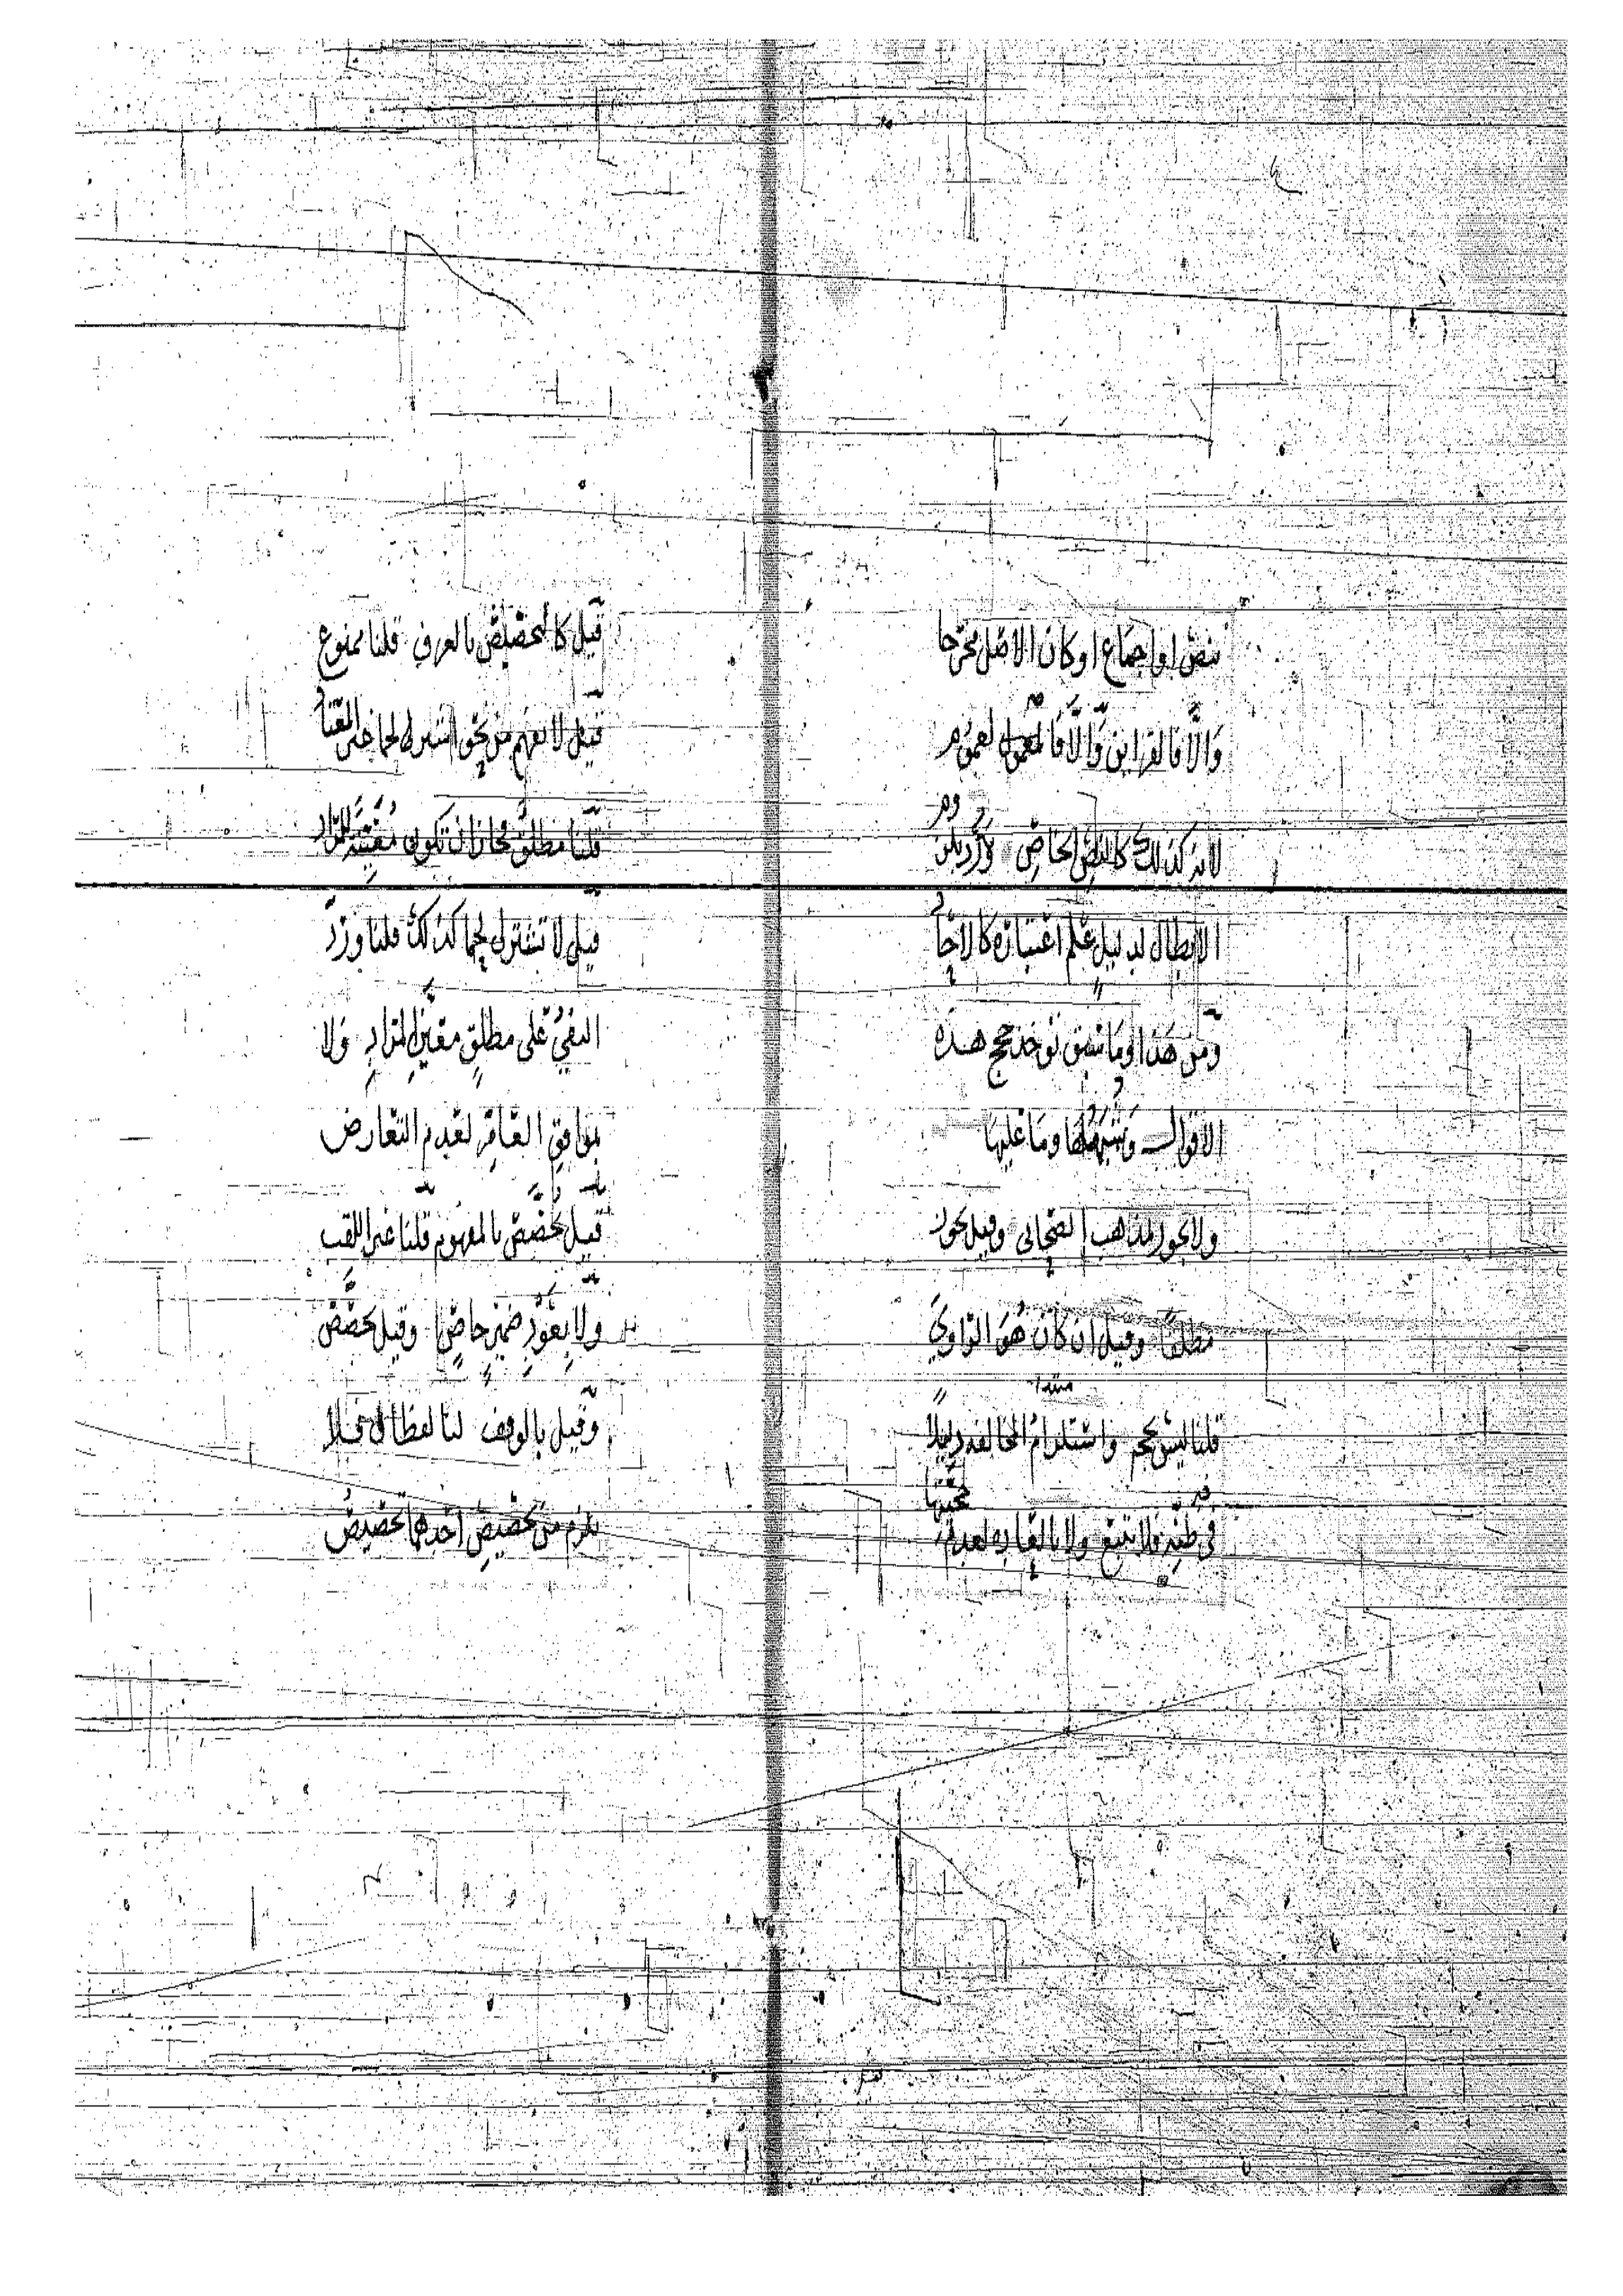 بنص او اجماع او كان الاصل مخرجا
وَالَّا فالقراين وَّالَّا فالمعمول لعموم
لانه كذلك كالنص الخاص وَرُدّ بلزوم
الابطال لدليل علم اعتباره كالاجما
ومن هذا وما سبق تؤخذ حجج هذه
الاقوال وشبهها وما عليها
ولا يجوز لمذهب الصحابى وقيل يجوز
مطلقا وقيل ان كان هُوَ الرّاوِيَ
قلنا ليس بحجه واستلزام المخالفه دليلاً
مبتدا
فى ظنّه فلا يتبع ولا بالعاده لعدم
حجّيتها
قيل كالتخصيص بالعرفي قلنا ممنوع
قيل لا يفهم من نحو اشتر لحما غير المعتاد
قلنا مطلق فجاز ان تكون مُقيّدة للمراد
قيل لا تشتر لحما كذلك قلنا ورد
النفيُ على مطلقٍ مقيّد المرادِ وَلا
بموافق العام لعدم التعارض
قيل خُصّص بالمفهوم قلنا غير اللقب
ولا بِعَوْدِ ضميرٍ خاصٍّ وقيل يخصّص
وقيل بالوقف لنا لفظان فلا
يلزم من تخصيص احدهما تخصيصُ